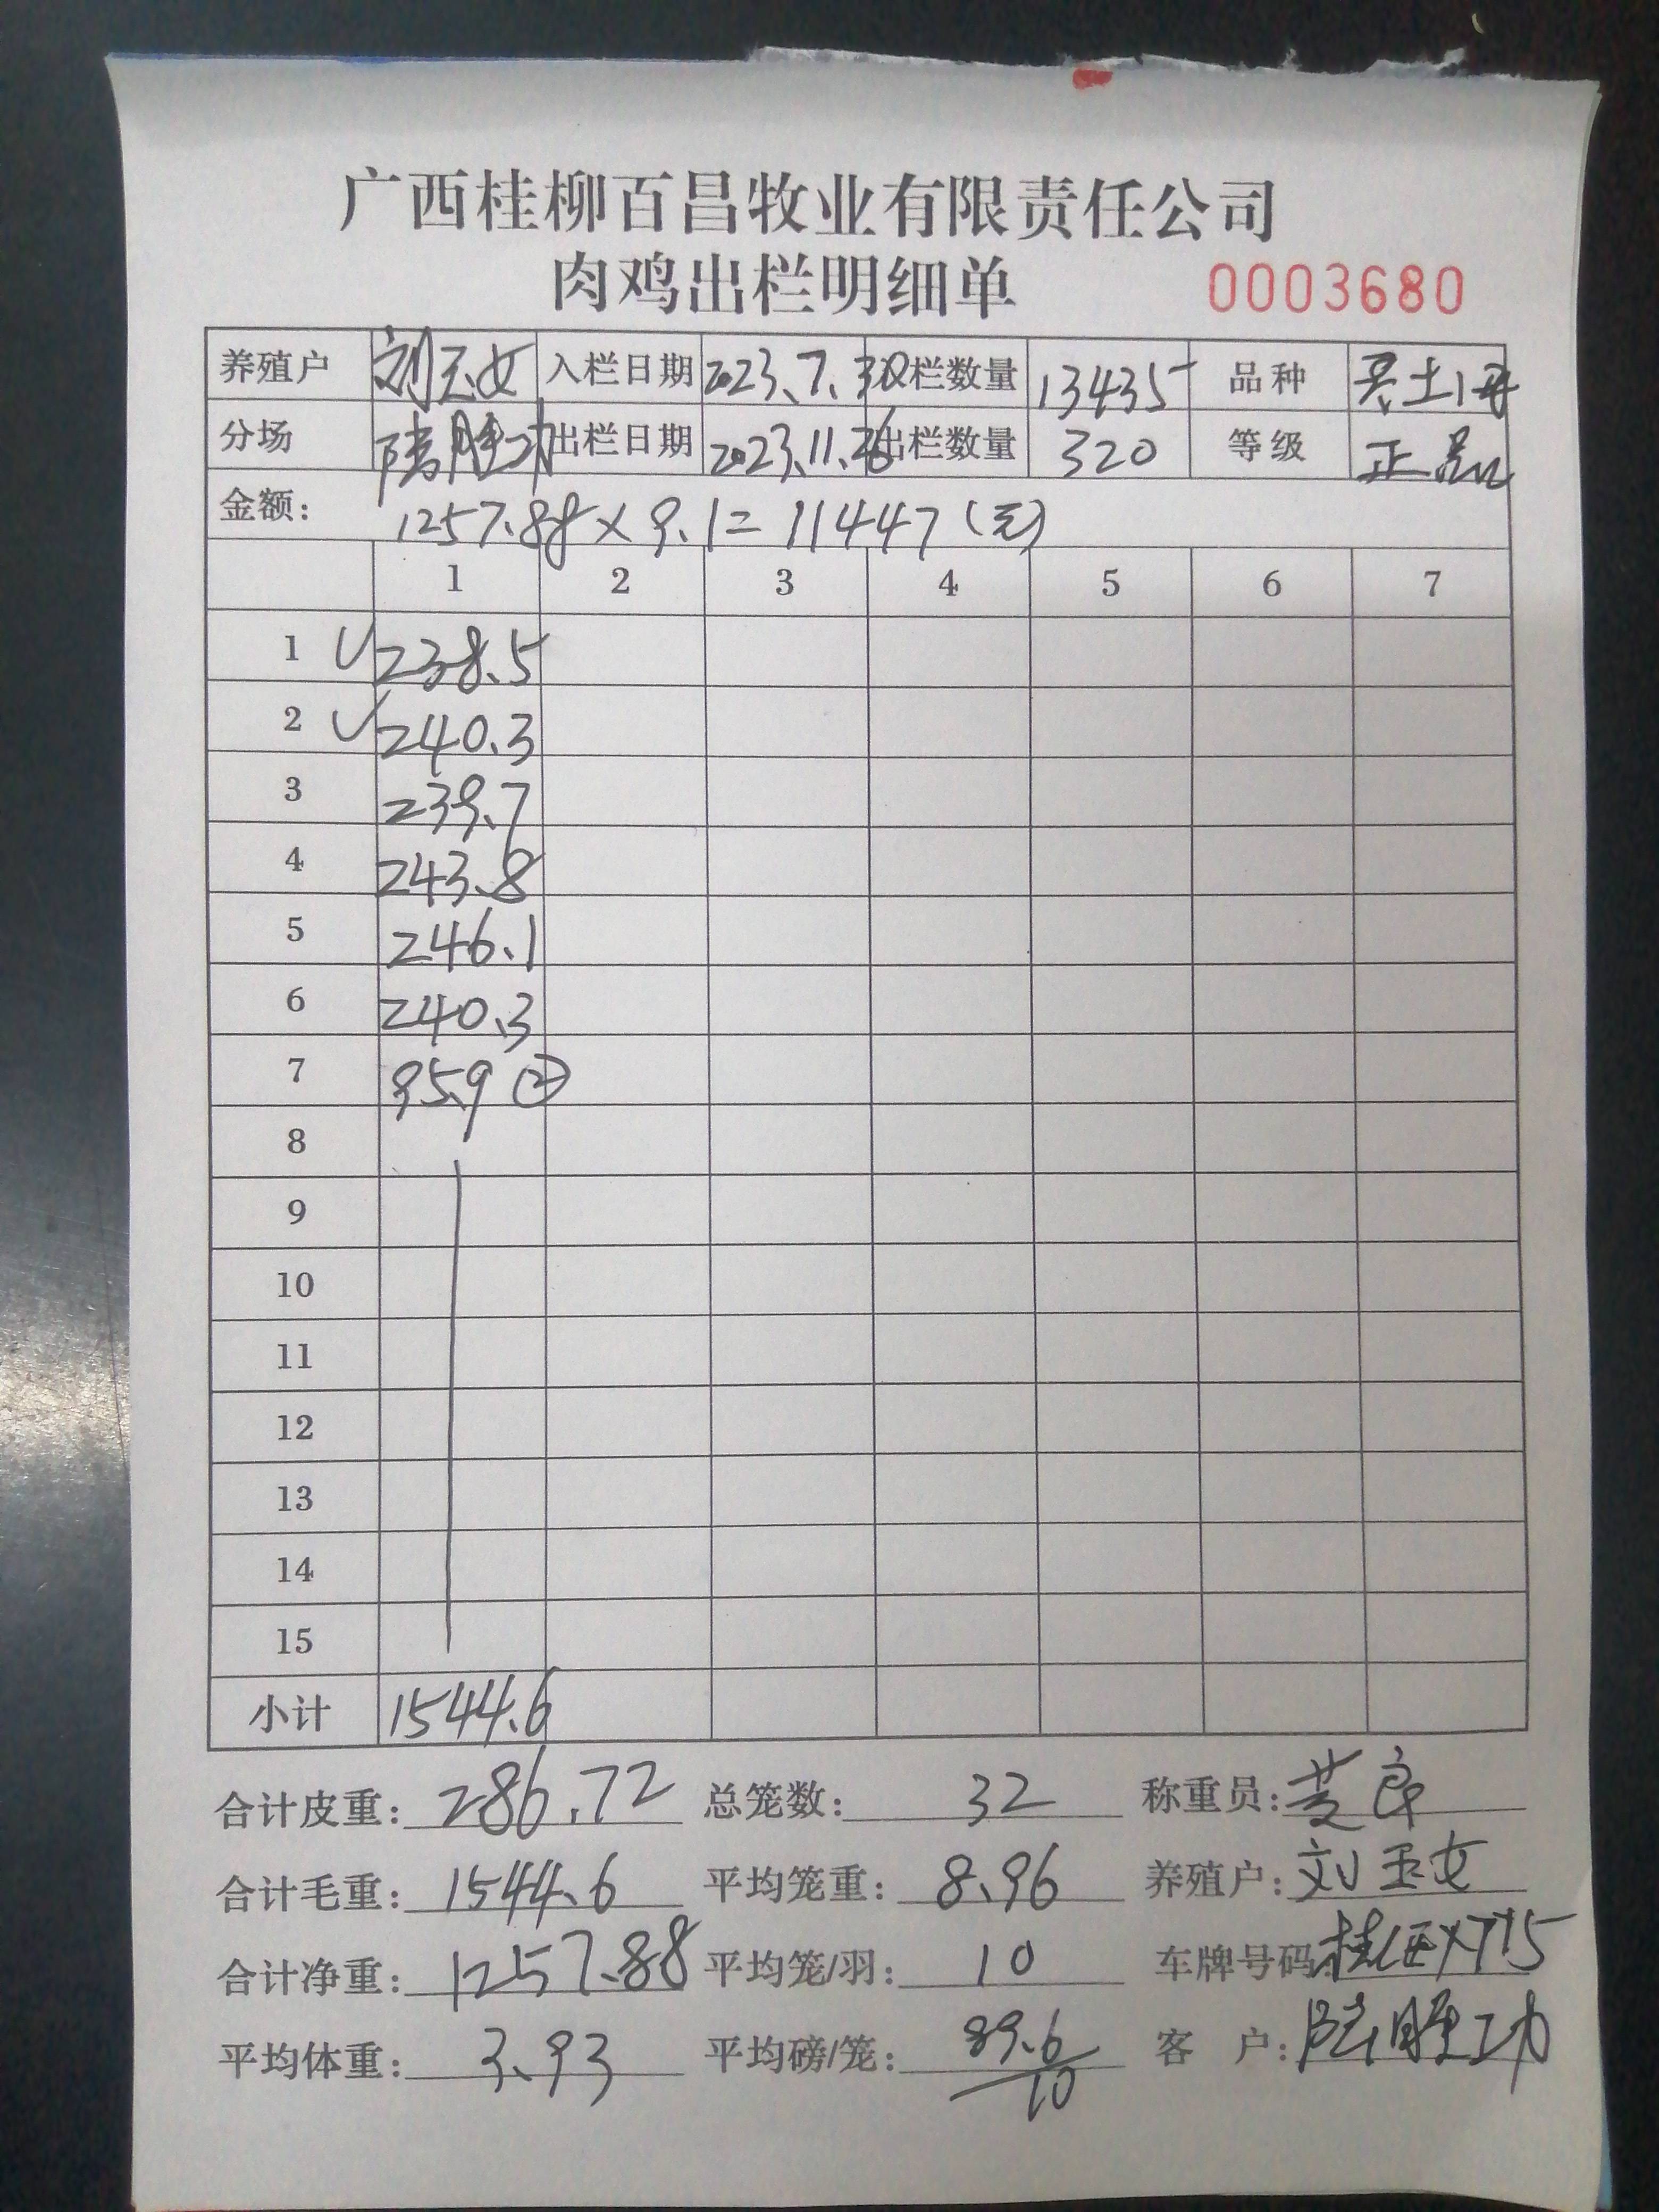 广西桂柳百昌牧业有限责任公司
肉鸡出栏明细单 0003680
养殖户 刘玉女 入栏日期 2023.7.30 入栏数量 13435 品种 土1号
分场 陆胜功 出栏日期 2023.11.26 出栏数量 320 等级 正品
金额: 1257.88×9.1=11447(元)
1 2 3 4 5 6 7
1 238.5
2 240.3
3 239.7
4 243.8
5 246.1
6 240.3
7 95.9 ②
8
9
10
11
12
13
14
15
小计 1544.6
合计皮重: 286.72 总笼数: 32 称重员:
合计毛重: 1544.6 平均笼重: 8.96 养殖户: 刘玉女
合计净重: 1257.88 平均笼/羽: 10 车牌号码:
平均体重: 3.93 平均磅/笼: 89.6/10 客 户: 陆胜功